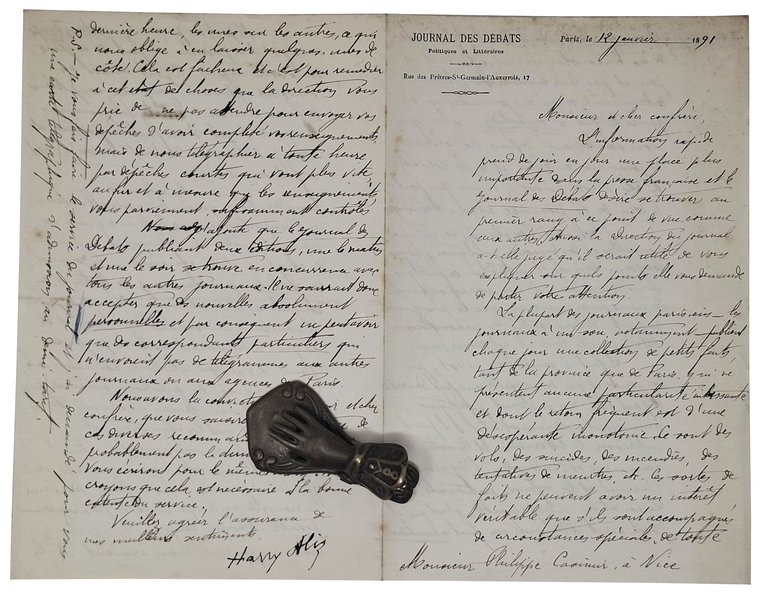 JOURNAL DES DÉBATS
Politiques et Littéraires
Rue des Prêtres-St-Germain-l'Auxerrois, 17
Paris, le 12 janvier 1891
Monsieur et cher confrère,
L'information rapide
prend de jour en jour une place plus
importante dans la presse française et le
Journal des Débats désire se trouver au
premier rang à ce point de vue comme
aux autres. Aussi la Direction du journal
a-t-elle jugé qu'il serait utile de vous
expliquer sur quels points elle vous demande
de porter votre attention.
La plupart des journaux parisiens - les
journaux à un sou, notamment - publient
chaque jour une collection de petits faits,
tant de la province que de Paris, qui ne
présentent aucune particularité intéressante
et dont le retour fréquent est d'une
désespérante monotonie. Ce sont des
vols, des suicides, des incendies, des
tentatives de meurtres, etc. Ces sortes de
faits ne peuvent avoir un intérêt
véritable que s'ils sont accompagnés
de circonstances spéciales, de toute
Monsieur Philippe Casimir, à Nice
dernière heure, les unes sur les autres, ce qui
nous oblige à en laisser quelques unes de
côté. Cela est fâcheux et c'est pour remédier
à cet état de choses que la direction vous
prie de ne pas attendre pour envoyer vos
dépêches d'avoir complété vos renseignements
mais de nous télégraphier à toute heure
par dépêches courtes qui vont plus vite
au fur et à mesure que les renseignements
vous parviennent, suffisamment contrôlés
j'ajoute que le Journal des
Débats publiant deux éditions, une le matin
et une le soir se trouve en concurrence avec
tous les autres journaux. Il ne saurait donc
accepter que des nouvelles absolument
personnelles et par conséquent ne peut avoir
que des correspondants particuliers qui
n'envoient pas de télégrammes aux autres
journaux ou aux agences de Paris.
Nous avons la conviction et cher
confrère, que vous de
ces diverses
probablement pas la
vous écrirons pour le même
croyons que cela est nécessaire à la bonne
du service.
Veuillez agréer l'assurance de
mes meilleurs sentiments
Harry Alis
P.S. - Je vous fais faire le service du journal et je demande pour vous
une carte télégraphique